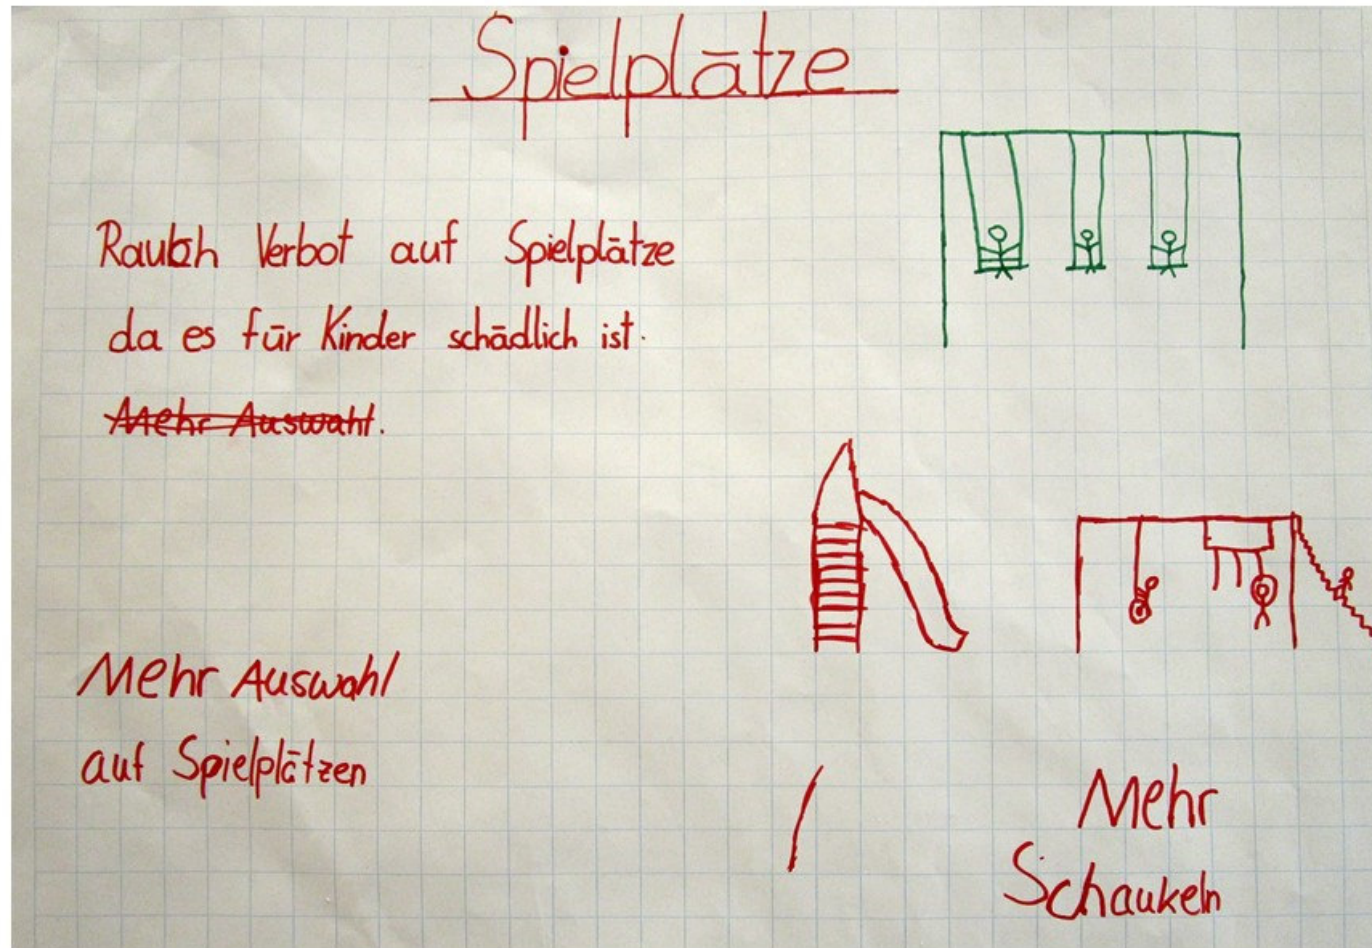 Spielplätze
Rauch Verbot auf Spielplätze
da es für Kinder schädlich ist.
Mehr Auswahl.
Mehr Auswahl
auf Spielplätzen
Mehr
Schaukeln